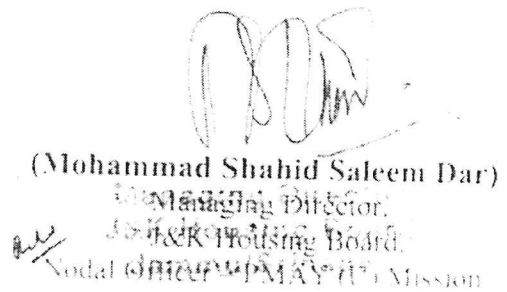 (Mohammad Shahid Saleem Dar)
Managing Director,
J&K Housing Board,
Nodal Officer - PMAY (U) Mission